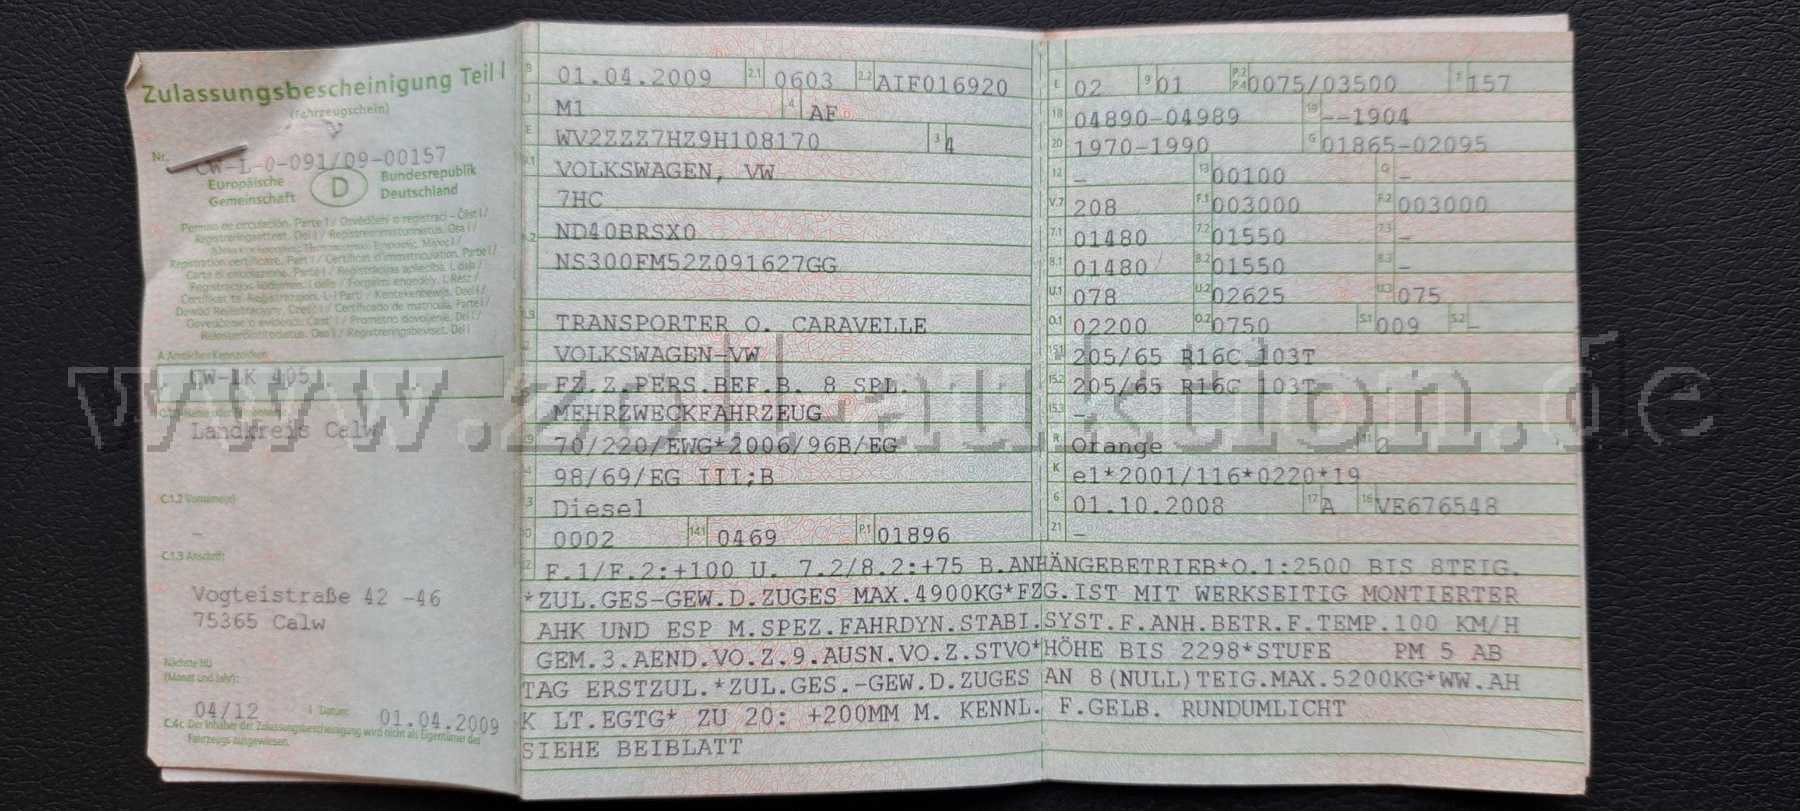 Zulassungsbescheinigung Teil I
(Fahrzeugschein)
Nr. CW-L-0-091/09-00157
Europäische Gemeinschaft D Bundesrepublik Deutschland
Permiso de circulación. Parte I / Osvědčení o registraci - Část I /
Registreringsattest. Del I / Registreerimistunnistus. Osa I /
Registration certificate. Part I / Certificat d'immatriculation. Partie I /
A Amtliches Kennzeichen
CW-LK 4051
Landkreis Calw
C.1.2 Vorname(n)
-
C.1.3 Anschrift
Vogteistraße 42 -46
75365 Calw
Nächste HU
(Monat und Jahr):
04/12 I Datum: 01.04.2009
C.4c Der Inhaber der Zulassungsbescheinigung wird nicht als Eigentümer des
Fahrzeugs ausgewiesen.
B 01.04.2009 2.1 0603 2.2 AIF016920
J M1 4 AF
E WV2ZZZ7HZ9H108170 3 4
D.1 VOLKSWAGEN, VW
7HC
ND40BRSX0
D.2 NS300FM52Z091627GG
D.3 TRANSPORTER O. CARAVELLE
2 VOLKSWAGEN-VW
FZ.Z.PERS.BEF.B. 8 SPL.
MEHRZWECKFAHRZEUG
V.9 70/220/EWG*2006/96B/EG
14 98/69/EG III;B
P.3 Diesel
10 0002 14.1 0469 P.1 01896
L 02 9 01 P.2 P.4 0075/03500 T 157
18 04890-04989 19 --1904
20 1970-1990 G 01865-02095
12 - 13 00100 Q -
V.7 208 F.1 003000 F.2 003000
7.1 01480 7.2 01550 7.3 -
8.1 01480 8.2 01550 8.3 -
U.1 078 U.2 02625 U.3 075
O.1 02200 O.2 0750 S.1 009 S.2 -
15.1 205/65 R16C 103T
15.2 205/65 R16C 103T
15.3 -
R Orange 11 2
K e1*2001/116*0220*19
6 01.10.2008 17 A 16 VE676548
21 -
22 F.1/F.2:+100 U. 7.2/8.2:+75 B.ANHÄNGEBETRIEB*O.1:2500 BIS 8TEIG.
*ZUL.GES-GEW.D.ZUGES MAX.4900KG*FZG.IST MIT WERKSEITIG MONTIERTER
AHK UND ESP M.SPEZ.FAHRDYN.STABI.SYST.F.ANH.BETR.F.TEMP.100 KM/H
GEM.3.AEND.VO.Z.9.AUSN.VO.Z.STVO*HÖHE BIS 2298*STUFE PM 5 AB
TAG ERSTZUL.*ZUL.GES.-GEW.D.ZUGES AN 8(NULL)TEIG.MAX.5200KG*WW.AH
K LT.EGTG* ZU 20: +200MM M. KENNL. F.GELB. RUNDUMLICHT
SIEHE BEIBLATT
www.zoll-auktion.de